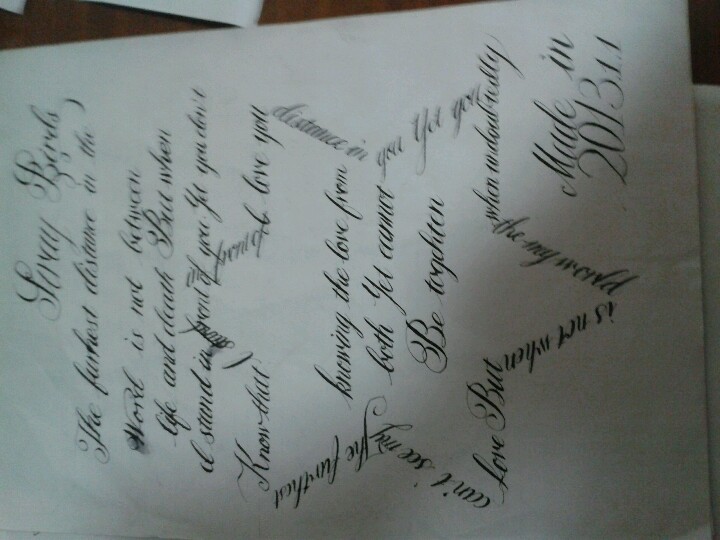 Stray Birds
The furhest distance in the
Word is not between
life and death But when
I stand in front of you Yet you don't
Know that I love you
The furthest
distance in the my world
is not when
love But
can't see my
when undoubtedly
knowing the love from
both Yet cannot
Be toghten
you Yet you
Made in
2013.1.1